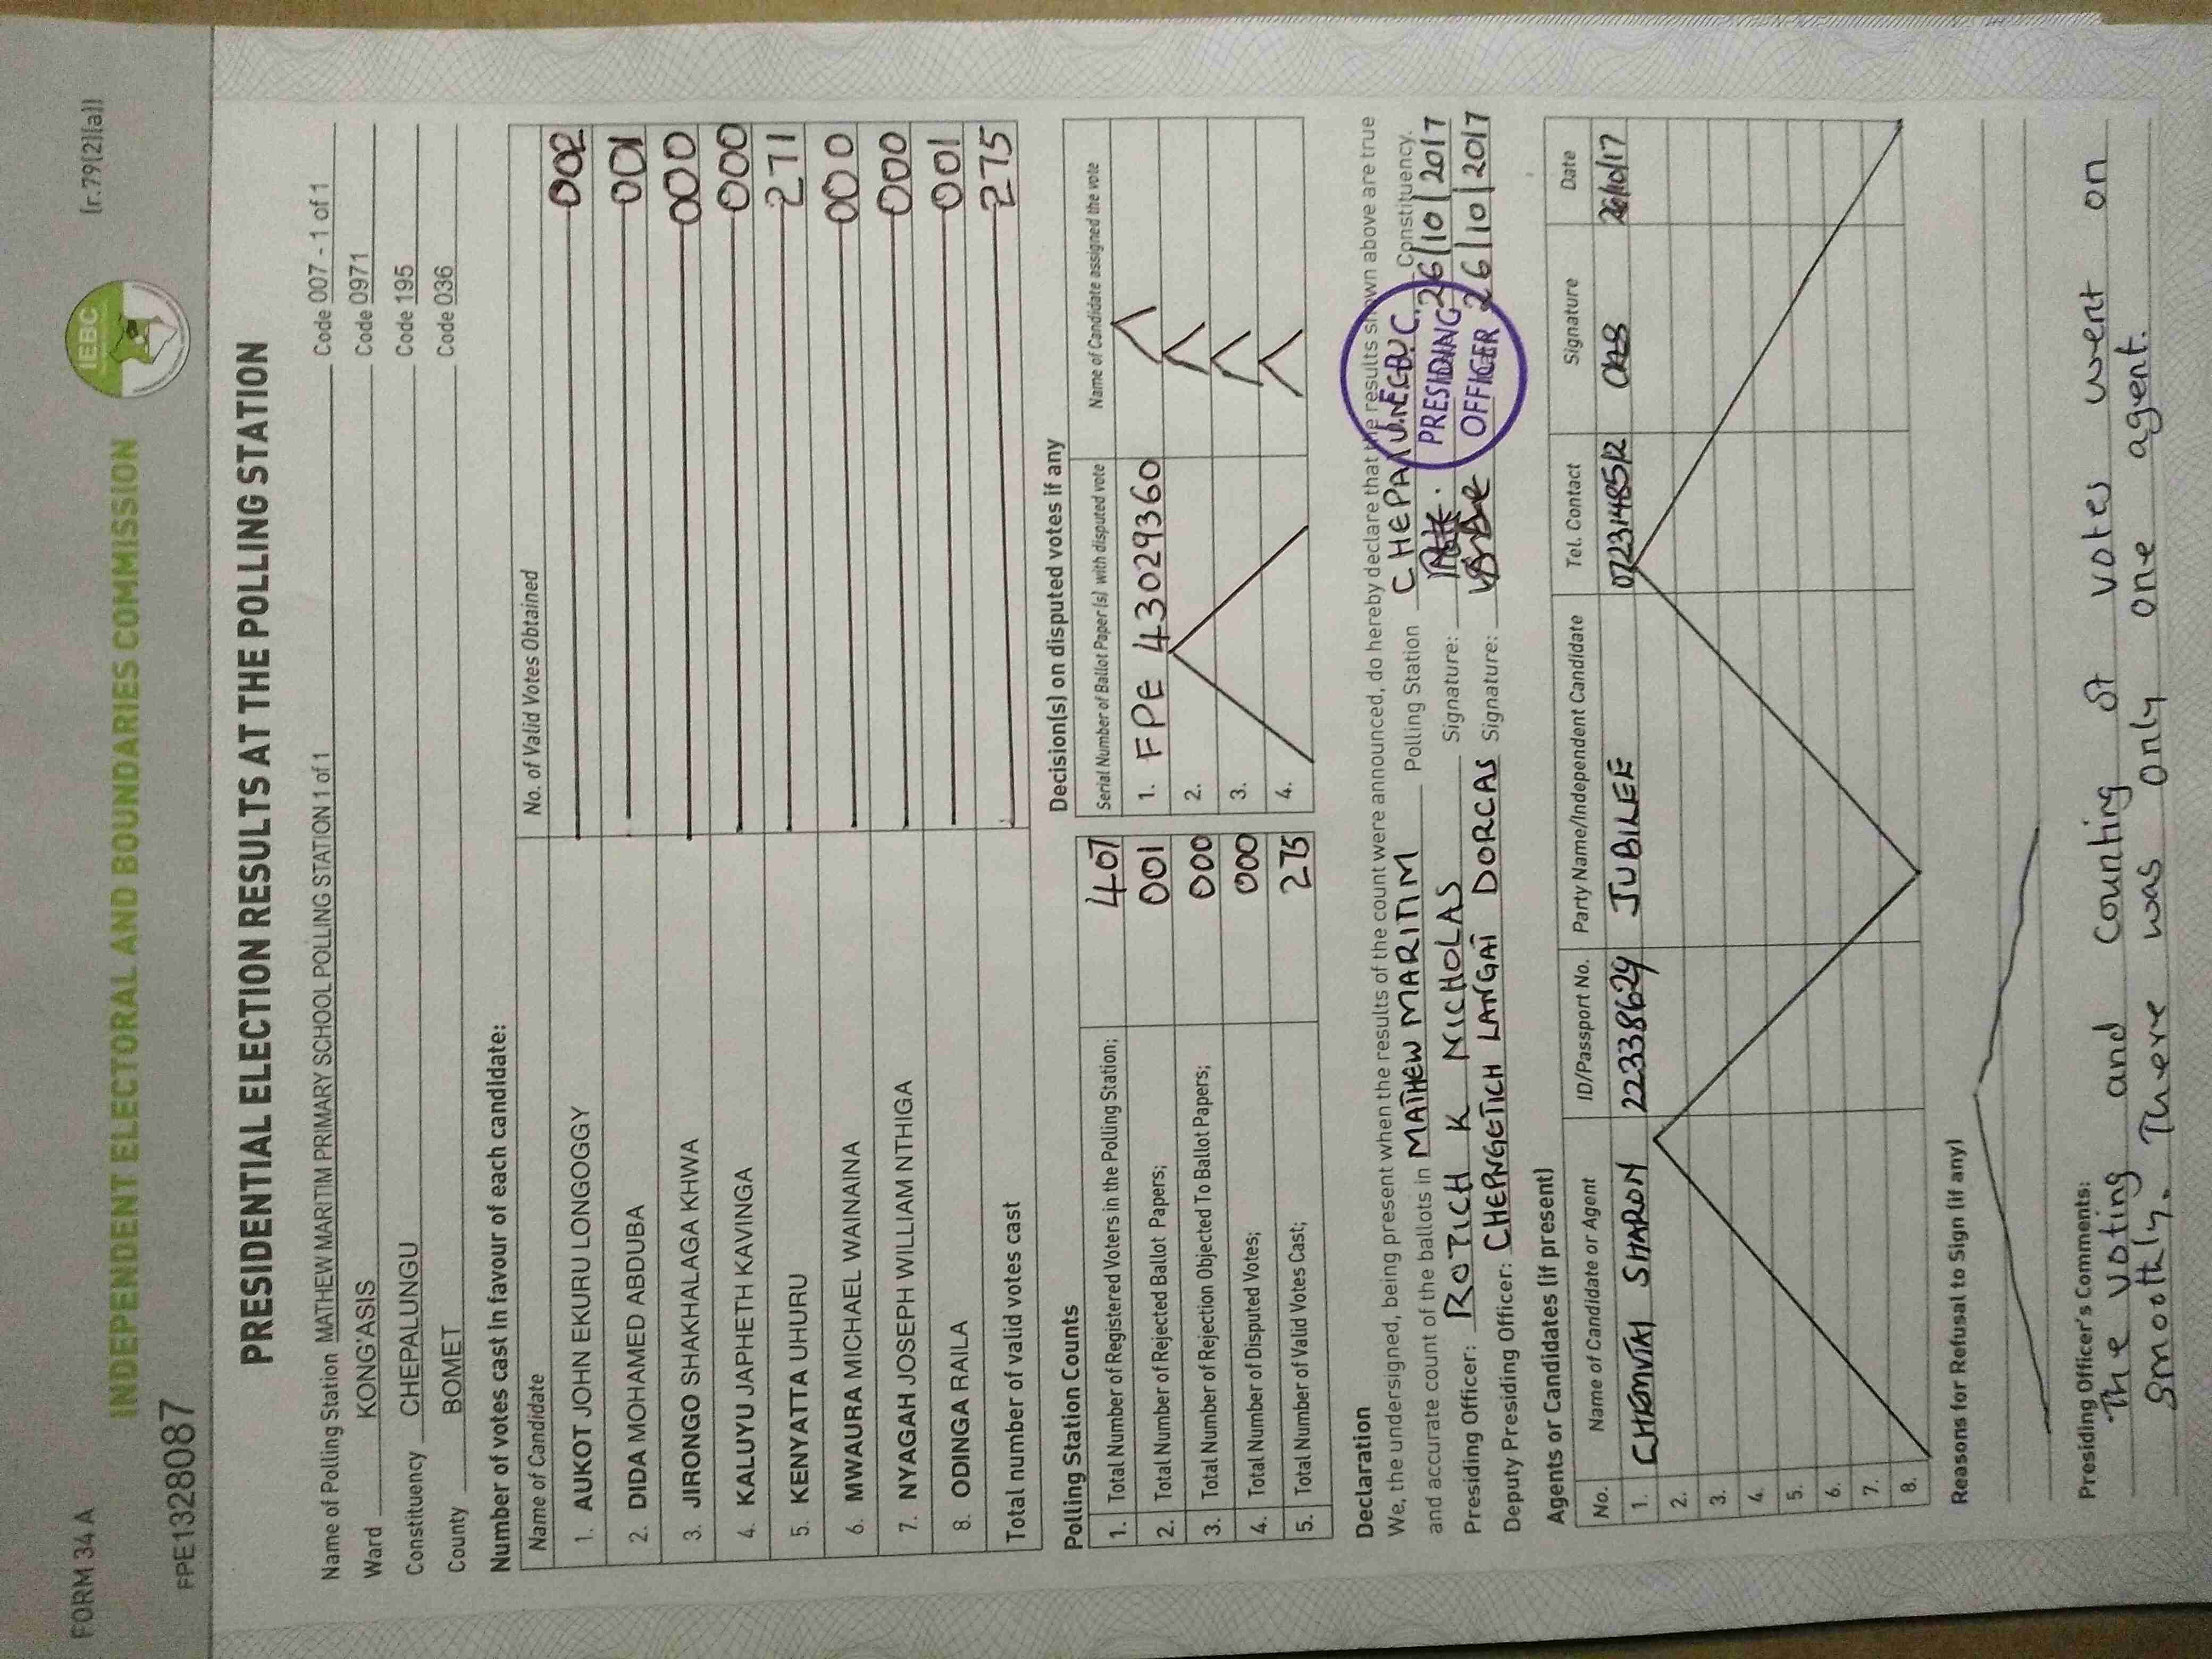 FORM 34 A
INDEPENDENT ELECTORAL AND BOUNDARIES COMMISSION
IEBC
(r.79(2)(a))
FPE1328087
PRESIDENTIAL ELECTION RESULTS AT THE POLLING STATION
Name of Polling Station MATHEW MARITIM PRIMARY SCHOOL POLLING STATION 1 of 1 Code 007 - 1 of 1
Ward KONG'ASIS Code 0971
Constituency CHEPALUNGU Code 195
County BOMET Code 036
Number of votes cast in favour of each candidate:
Name of Candidate No. of Valid Votes Obtained
1. AUKOT JOHN EKURU LONGOGGY 002
2. DIDA MOHAMED ABDUBA 001
3. JIRONGO SHAKHALAGA KHWA 000
4. KALUYU JAPHETH KAVINGA 000
5. KENYATTA UHURU 271
6. MWAURA MICHAEL WAINAINA 000
7. NYAGAH JOSEPH WILLIAM NTHIGA 000
8. ODINGA RAILA 001
Total number of valid votes cast 275
Polling Station Counts
1. Total Number of Registered Voters in the Polling Station; 407
2. Total Number of Rejected Ballot Papers; 001
3. Total Number of Rejection Objected To Ballot Papers; 000
4. Total Number of Disputed Votes; 000
5. Total Number of Valid Votes Cast; 275
Decision(s) on disputed votes if any
Serial Number of Ballot Paper(s) with disputed vote Name of Candidate assigned the vote
1. FPE 43029360
2.
3.
4.
Declaration
We, the undersigned, being present when the results of the count were announced, do hereby declare that the results shown above are true
and accurate count of the ballots in MATHEW MARITIM Polling Station Constituency.
Presiding Officer: ROTICH K NICHOLAS Signature: 26/10/2017
Deputy Presiding Officer: CHEPNGETICH LANGAT DORCAS Signature: 26/10/2017
PRESIDING
OFFICER
Agents or Candidates (if present)
No. Name of Candidate or Agent ID/Passport No. Party Name/Independent Candidate Tel. Contact Signature Date
1. SHARON 22338629 JUBILEE 0723148512 26/10/17
2.
3.
4.
5.
6.
7.
8.
Reasons for Refusal to Sign (if any)
Presiding Officer's Comments:
The voting and counting of votes went on
smoothly. There was only one agent.